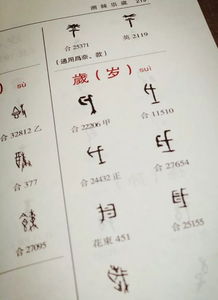 合 25371
英 2119
(通用爲奈、敦)
) suì
歲(岁) suì
合 32812 乙
合 22206 甲
合 11510
合 377
合 24432 正
合 27654
合 27095
花東 451
合 25155